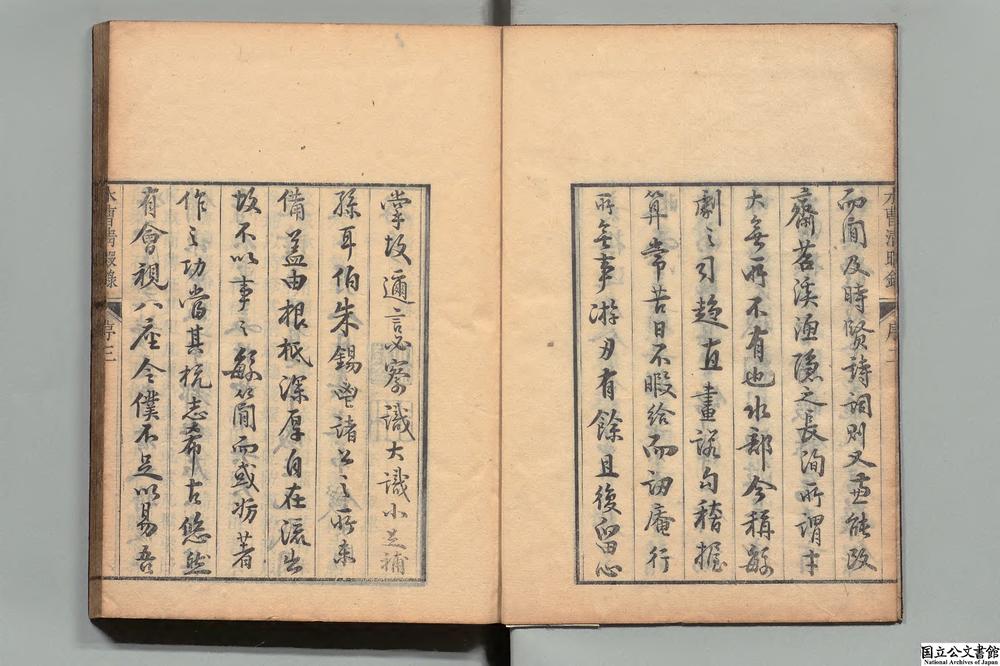 而間及時賢詩詞則又兼能改
齋苕溪漁隱之長洵所謂才
大無所不有也水部今稱繁
劇之司趨直畫諾句稽握
算常苦日不暇給而訒庵行
所無事游刃有餘且復留心
掌故邇言必察識大識小足補
孫耳伯朱錫鬯諸公之所未
備蓋由根柢深厚自在流出
故不以事之繁簡而或妨著
作之功當其抗志希古悠然
有會視八座令僕不足以易吾
水曹清暇錄
序二
水曹清暇錄
序三
国立公文書館
National Archives of Japan